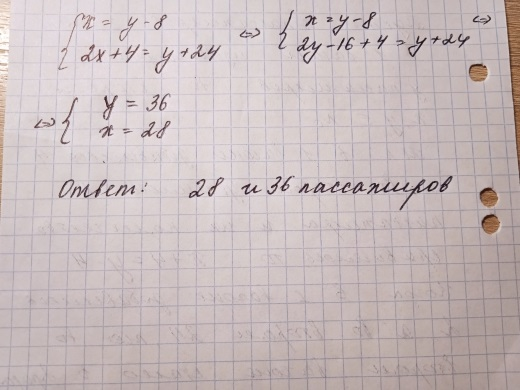 { x = y - 8 ⇔ { x = y - 8 ⇔
2x + 4 = y + 24 2y - 16 + 4 = y + 24
⇔ { y = 36
x = 28
Ответ: 28 и 36 пассажиров